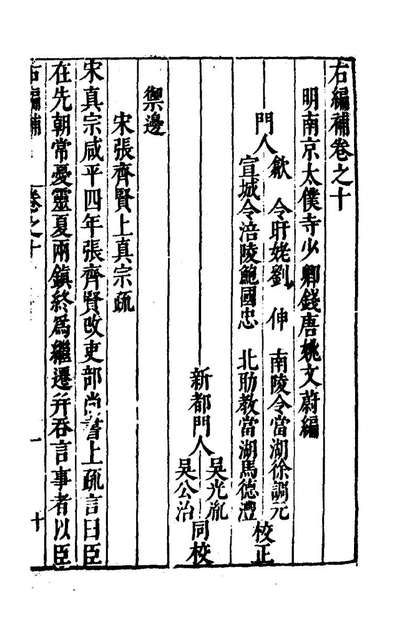 右編補卷之十
明南京太僕寺少卿錢唐姚文蔚編
門人
歙令旴姥劉伸 南陵令當湖徐調元
宣城令涪陵鮑國忠 北助教當湖馬德灃
校正
新都門人
吳光胤
吳公治
同校
禦邊
宋張齊賢上真宗疏
宋真宗咸平四年張齊賢改吏部尚書上疏言曰臣
在先朝常憂靈夏兩鎮終爲繼遷并吞言事者以臣
右編補 卷之十 一 十